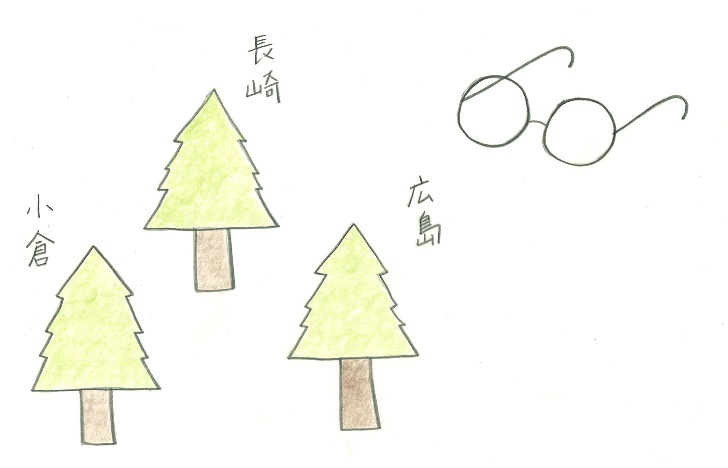 長崎
小倉
広島